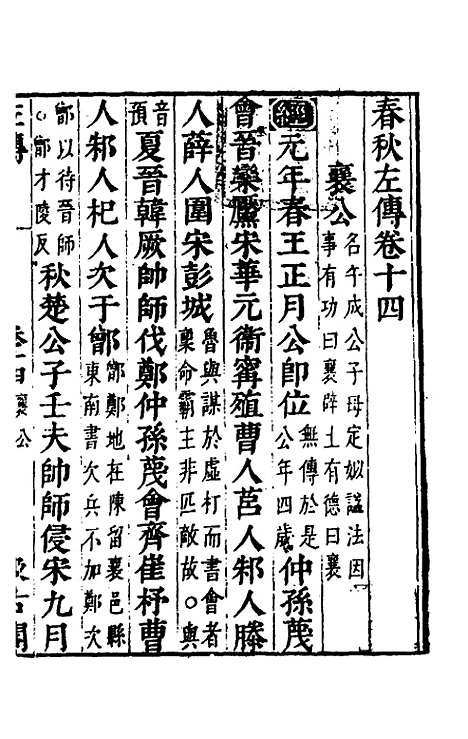 春秋左傳卷十四
襄公名午成公子母定姒謚法因事有功曰襄辟土有德曰襄
經元年春王正月公即位無傳於是公年四歲仲孫蔑
會晉欒黶宋華元衞甯殖曹人莒人邾人滕
人薛人圍宋彭城魯與謀於虛朾而書會者稟命霸主非匹敵故○與
音預夏晉韓厥帥師伐鄭仲孫蔑會齊崔杼曹
人邾人杞人次于鄫鄫鄭地在陳留襄邑縣東南書次兵不加鄭次
鄫以待晉師○鄫才陵反秋楚公子壬夫帥師侵宋九月
卷十四襄公